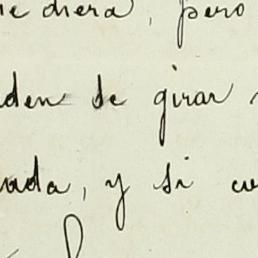 me diera, pero
den de girar
ada, y si cu